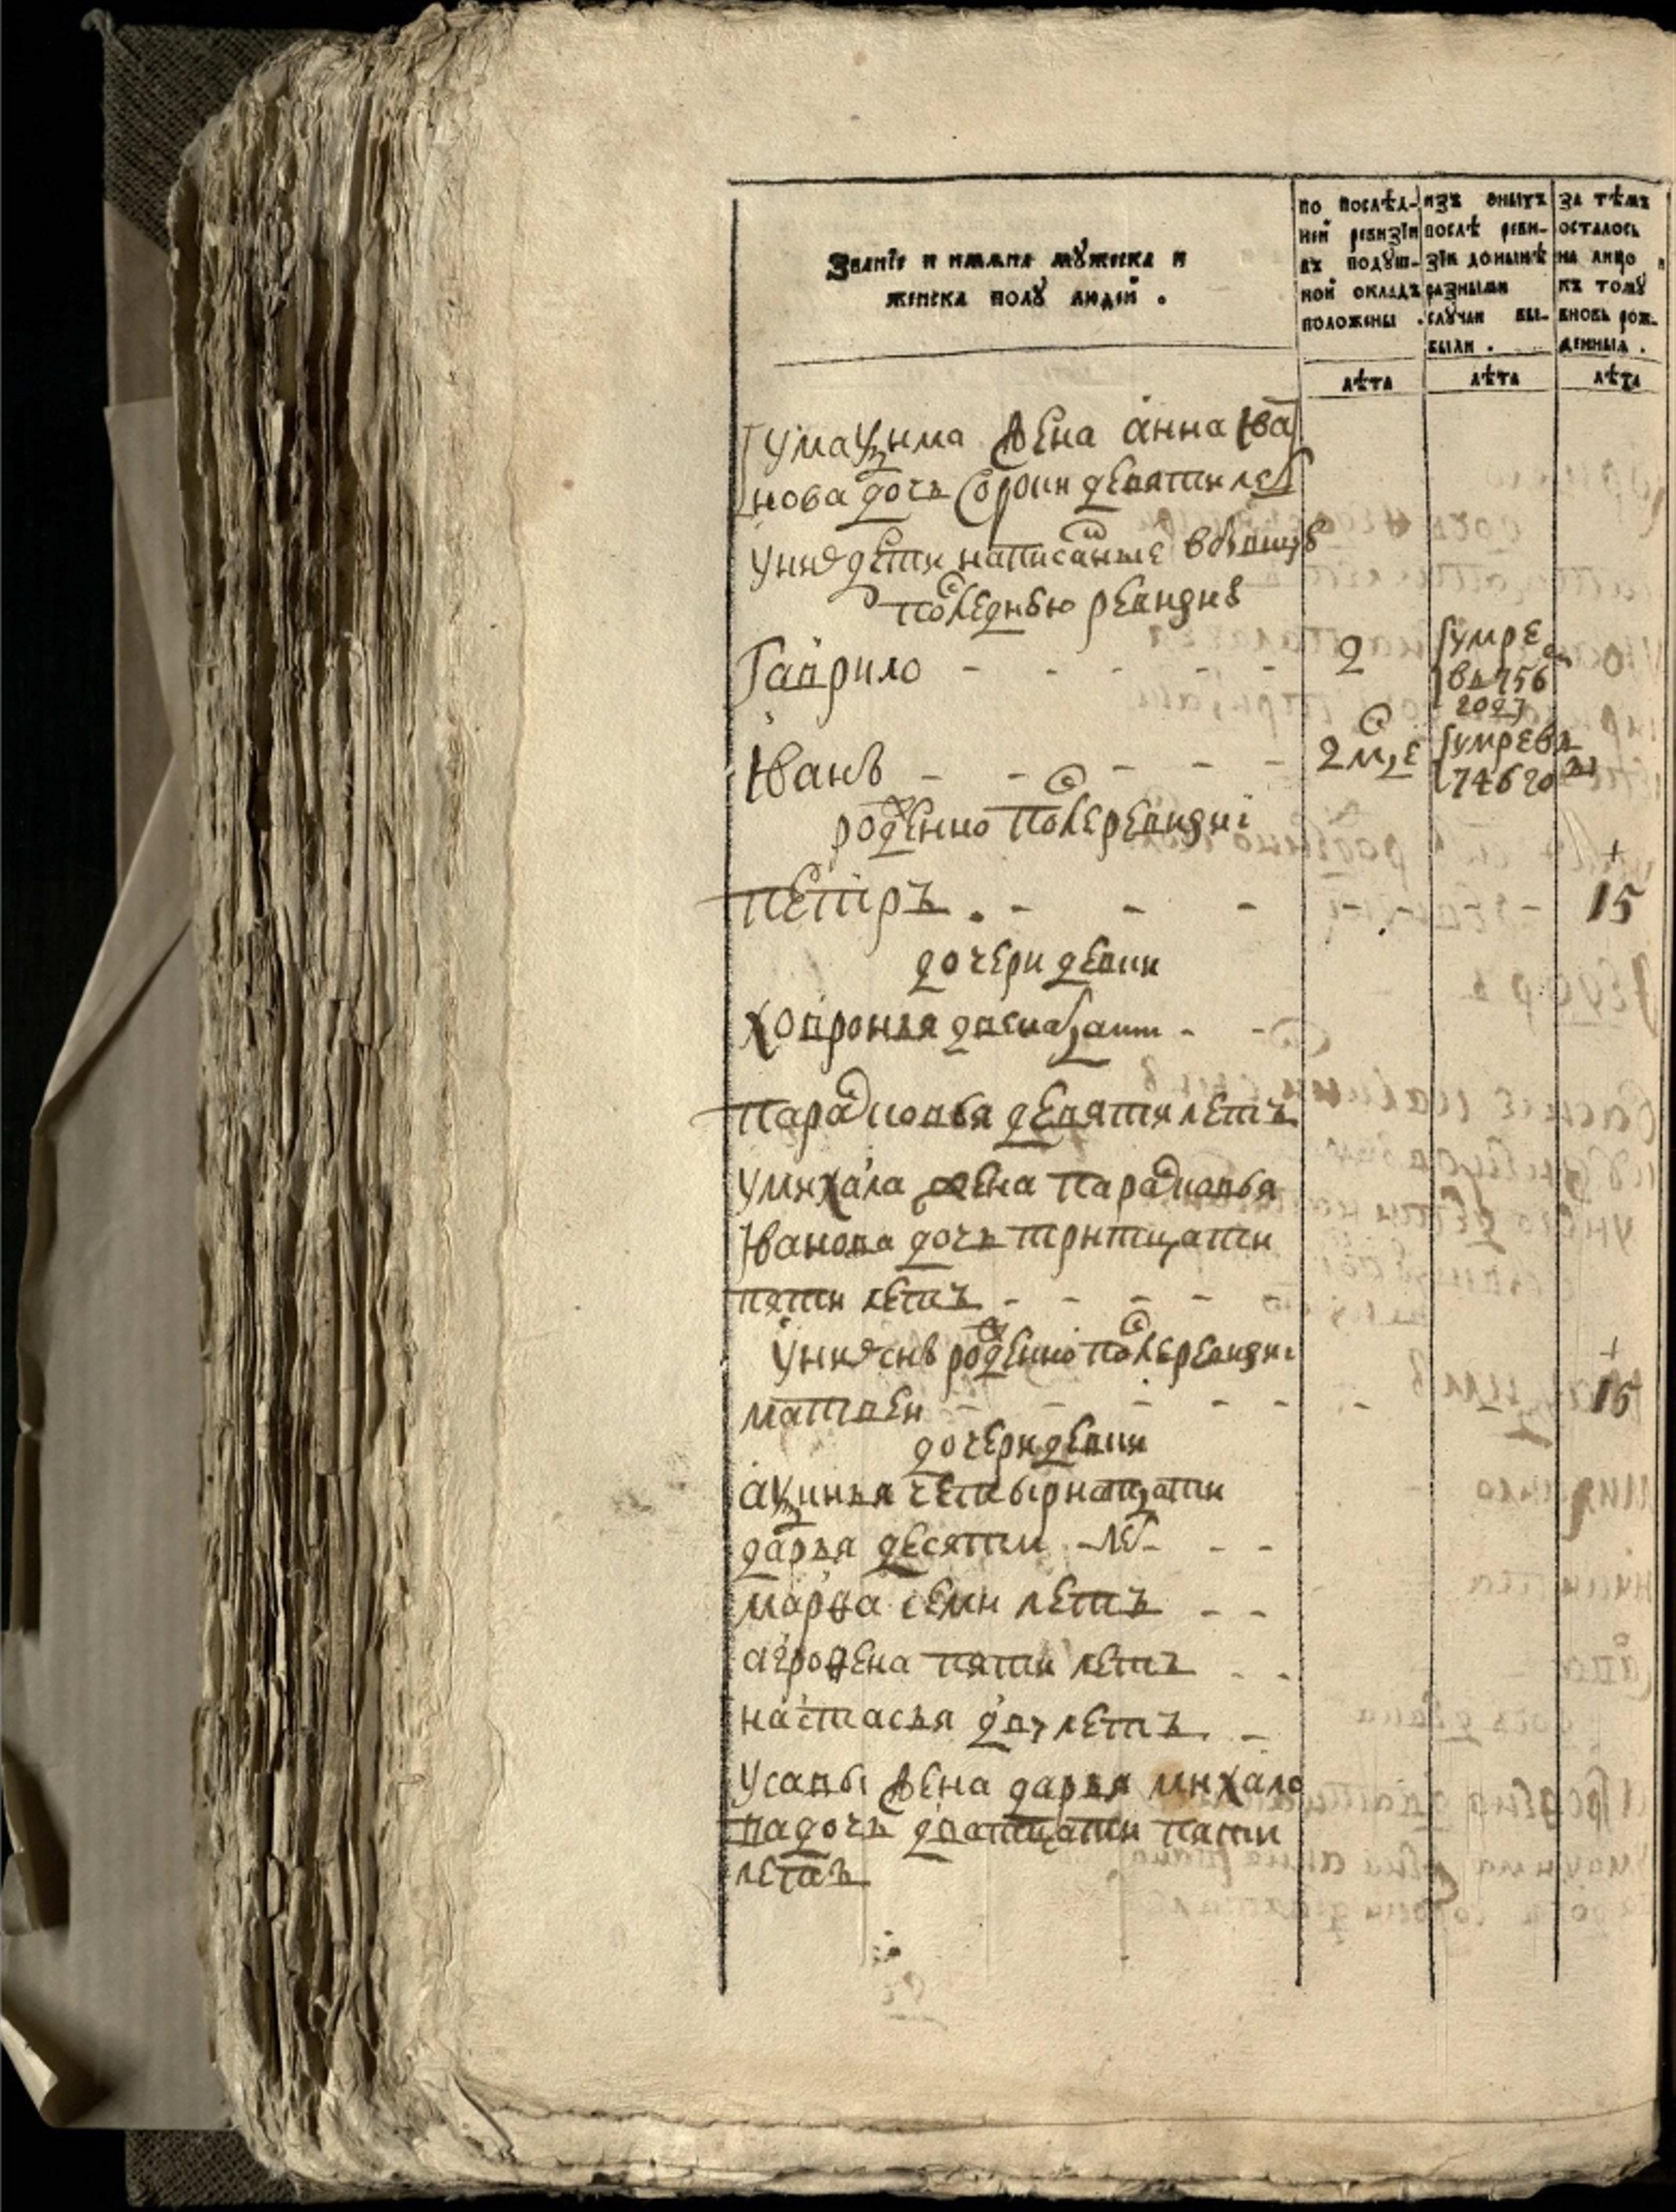 Званїе и имѧна мꙋжеска и
женска полꙋ людей .
по послѣд-
ней ревизїи
въ подꙋш-
ной окладъ
положены .
изъ оныхъ
послѣ реви-
зїи донынѣ
разными
слꙋчаи вы-
были .
за тѣмъ
осталось
на лицо и
къ томꙋ
вновь рож-
денныѧ .
лѣта
лѣта
лѣта
Умаѯима жена анна Ива
нова дочь сорок девяти лет
унихъ дети написаные
последнью ревизиѣ
Гаврило - - - - - 2 умре
в 756
году
Иванъ - - - - - 2 мце умре в
746 го
рожденно после ревизиі
петръ - - - - - 15
дочери девки
Ховронья двенацати - -
парасковья девяти летъ
Умихаила жена парасковья
Иванова дочь тритцати
пяти летъ - - - - -
Унихъ снъ рожденно после ревизиі
матвеи - - - - - - 15
дочери девки
аѯинья четырнатцати
дарья десяти лет - -
марѳа семи летъ - -
агроѳена пяти летъ - -
настасья двух летъ -
Усавы жена дарья михаило
ва дочь дватцати пяти
летъ